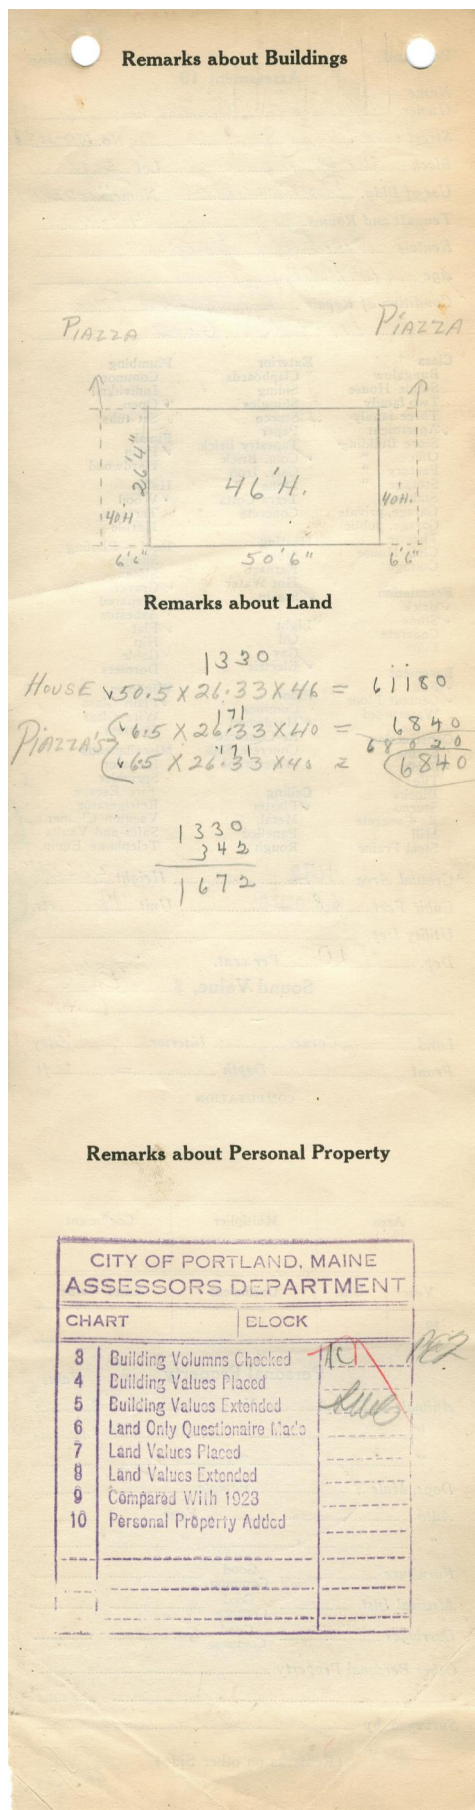 Remarks about Buildings
PIAZZA PIAZZA
26'4" 46'H.
40H 40H.
6'6" 50'6" 6'6"
Remarks about Land
1330
HOUSE √50.5 X 26.33 X 46 = 61180
171
PIAZZA'S √6.5 X 26.33 X 40 = 6840
68020
171
√6.5 X 26.33 X 40 = 6840
1330
342
1672
Remarks about Personal Property
CITY OF PORTLAND, MAINE
ASSESSORS DEPARTMENT
CHART BLOCK
3 Building Volumns Checked
4 Building Values Placed
5 Building Values Extended
6 Land Only Questionaire Made
7 Land Values Placed
8 Land Values Extended
9 Compared With 1923
10 Personal Property Added